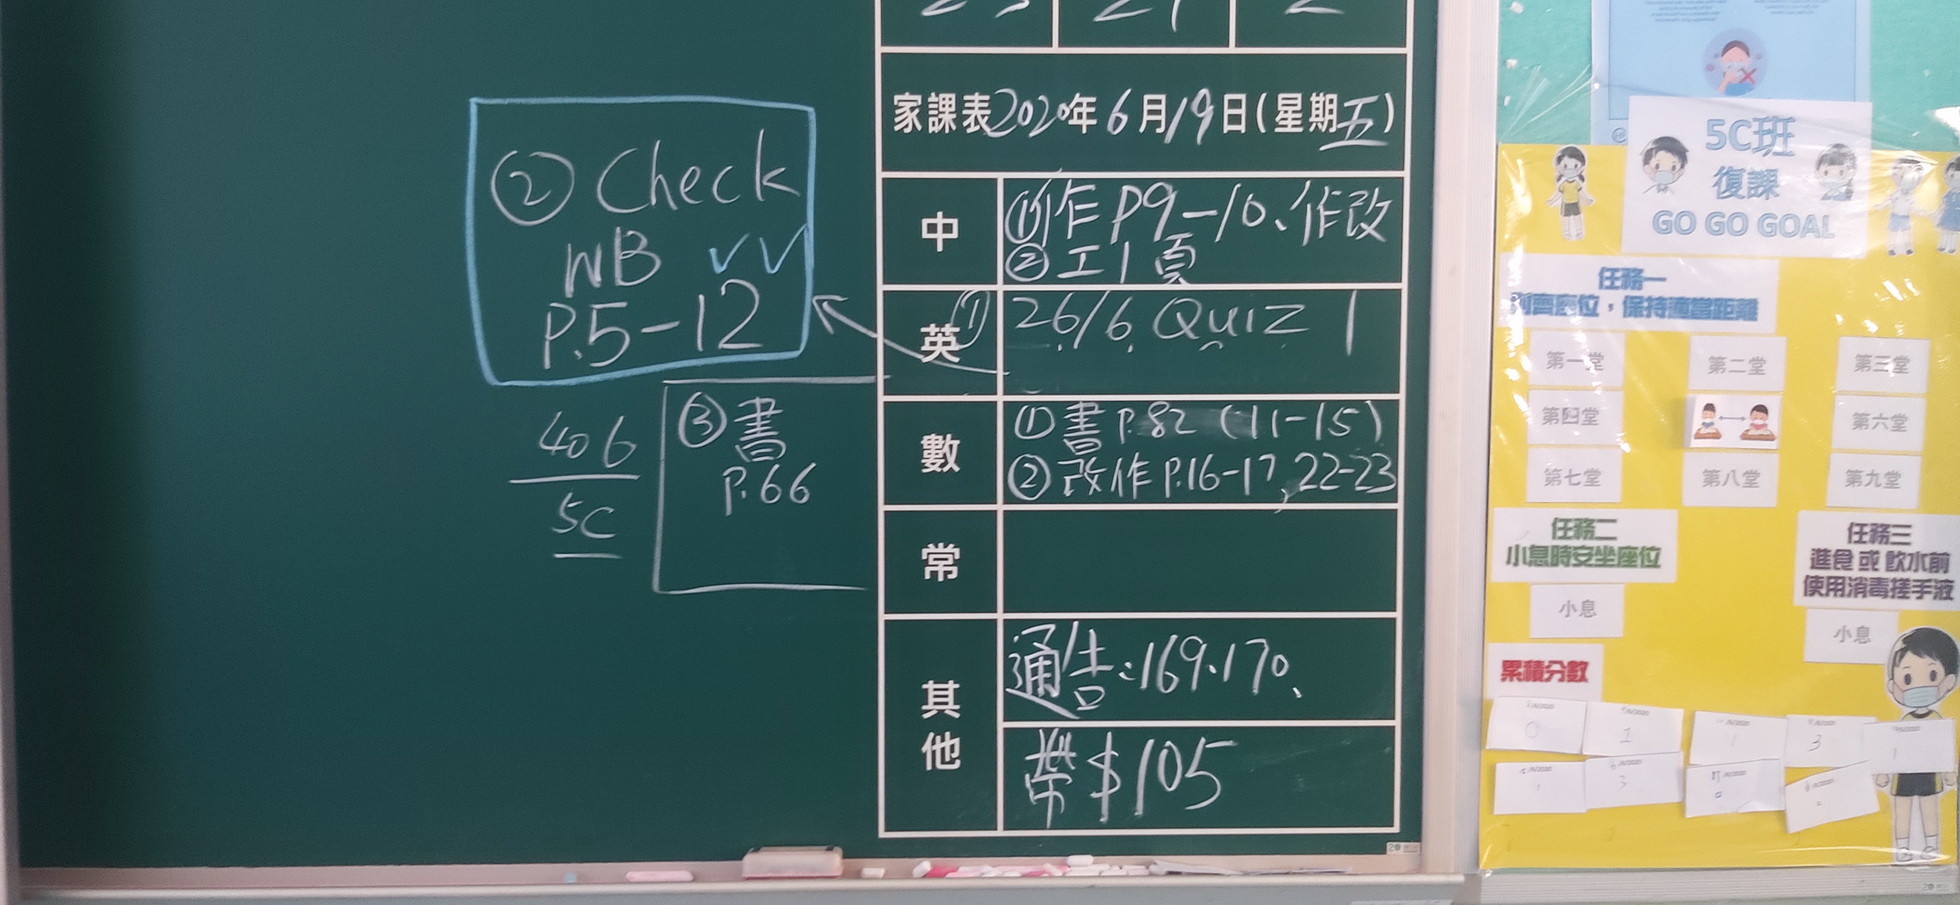 家課表2020年6月19日(星期五)
中
①作P9-10、作改
②工1頁
英
① 26/6 Quiz 1
② Check
WB ✓✓
P.5-12
數
①書P.82 (11-15)
②改作P.16-17,22-23
③書
P.66
406
5C
常
其他
通告:169.170、
帶$105
5C班
復課
GO GO GOAL
任務一
保持適當距離
第一堂
第二堂
第三堂
第四堂
第六堂
第七堂
第八堂
第九堂
任務二
小息時安坐座位
小息
任務三
進食 或 飲水前
使用消毒搓手液
小息
累積分數